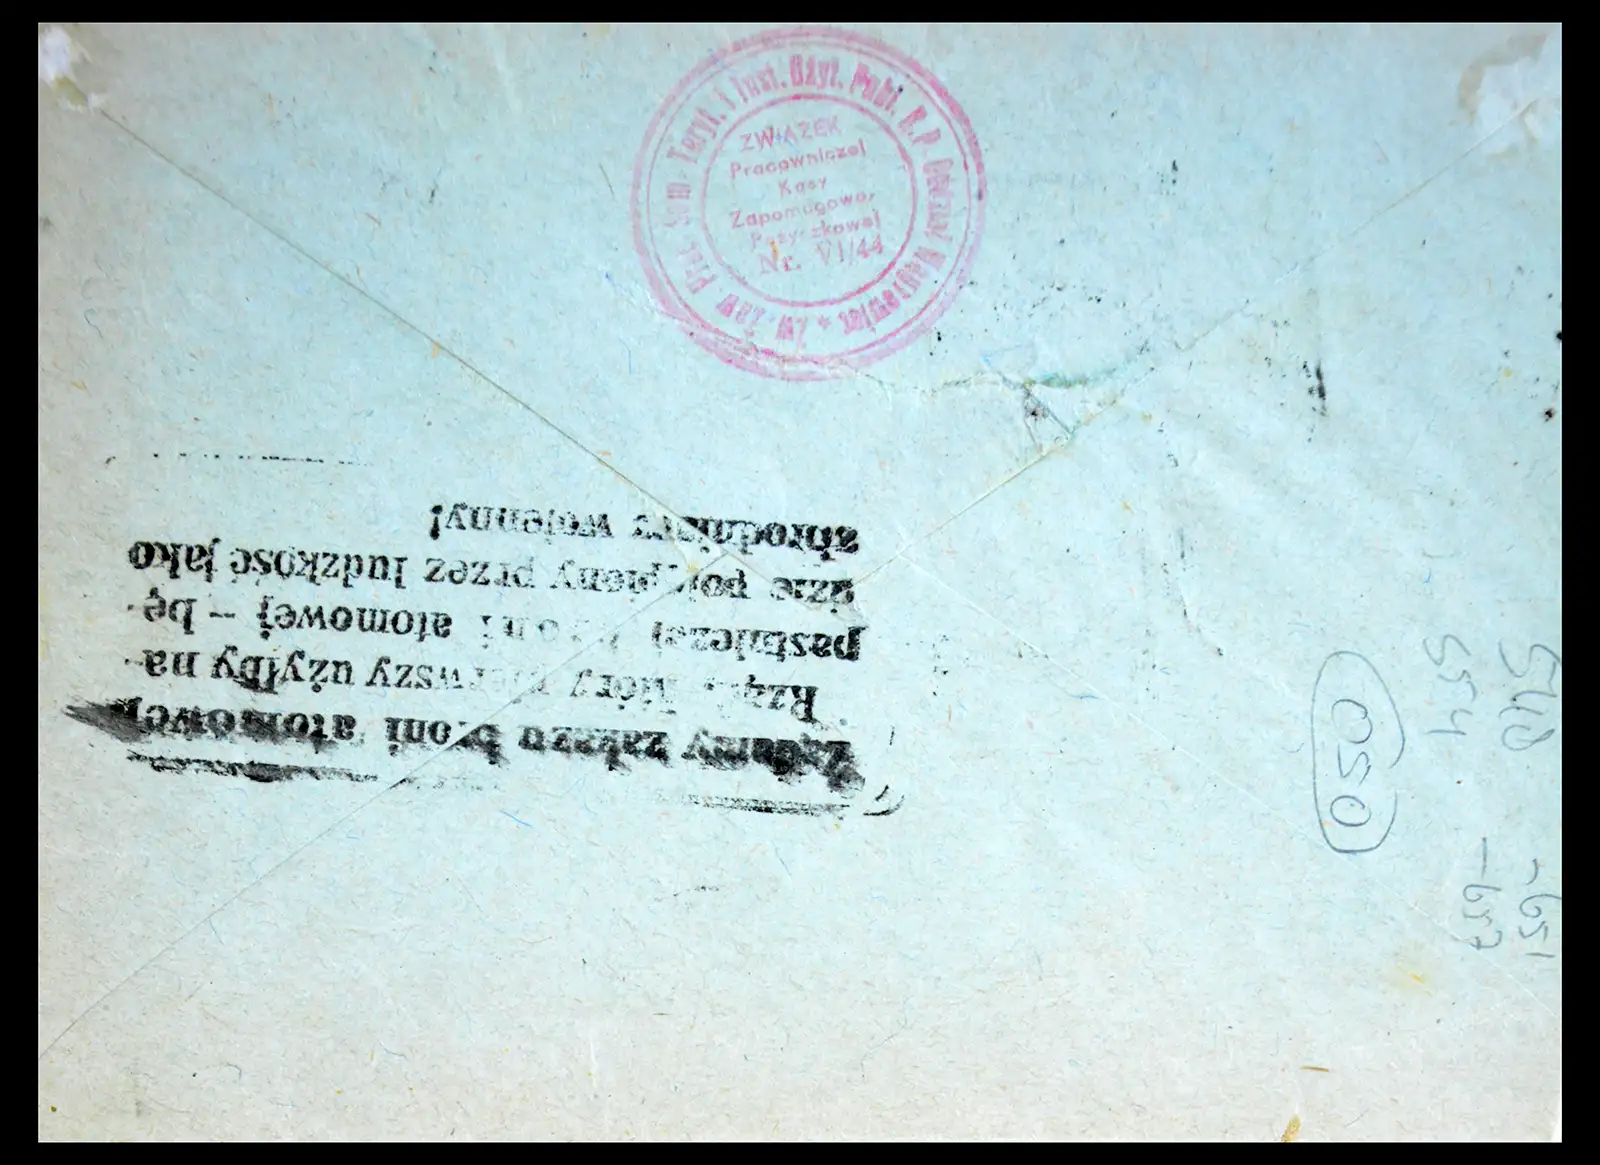 Zw. Zaw. Prac. Sam. Teryt. i Inst. Użyt. Publ. R.P.
ZWIĄZEK
Pracowniczej
Kasy
Zapomogowo,
Pożyczkowej
Nr. VI/44
Żądamy zakazu broni atomowej
Rząd, który pierwszy użyłby na-
pastniczej broni atomowej – bę-
dzie potępiony przez ludzkość jako
zbrodniarz wojenny!
050
554